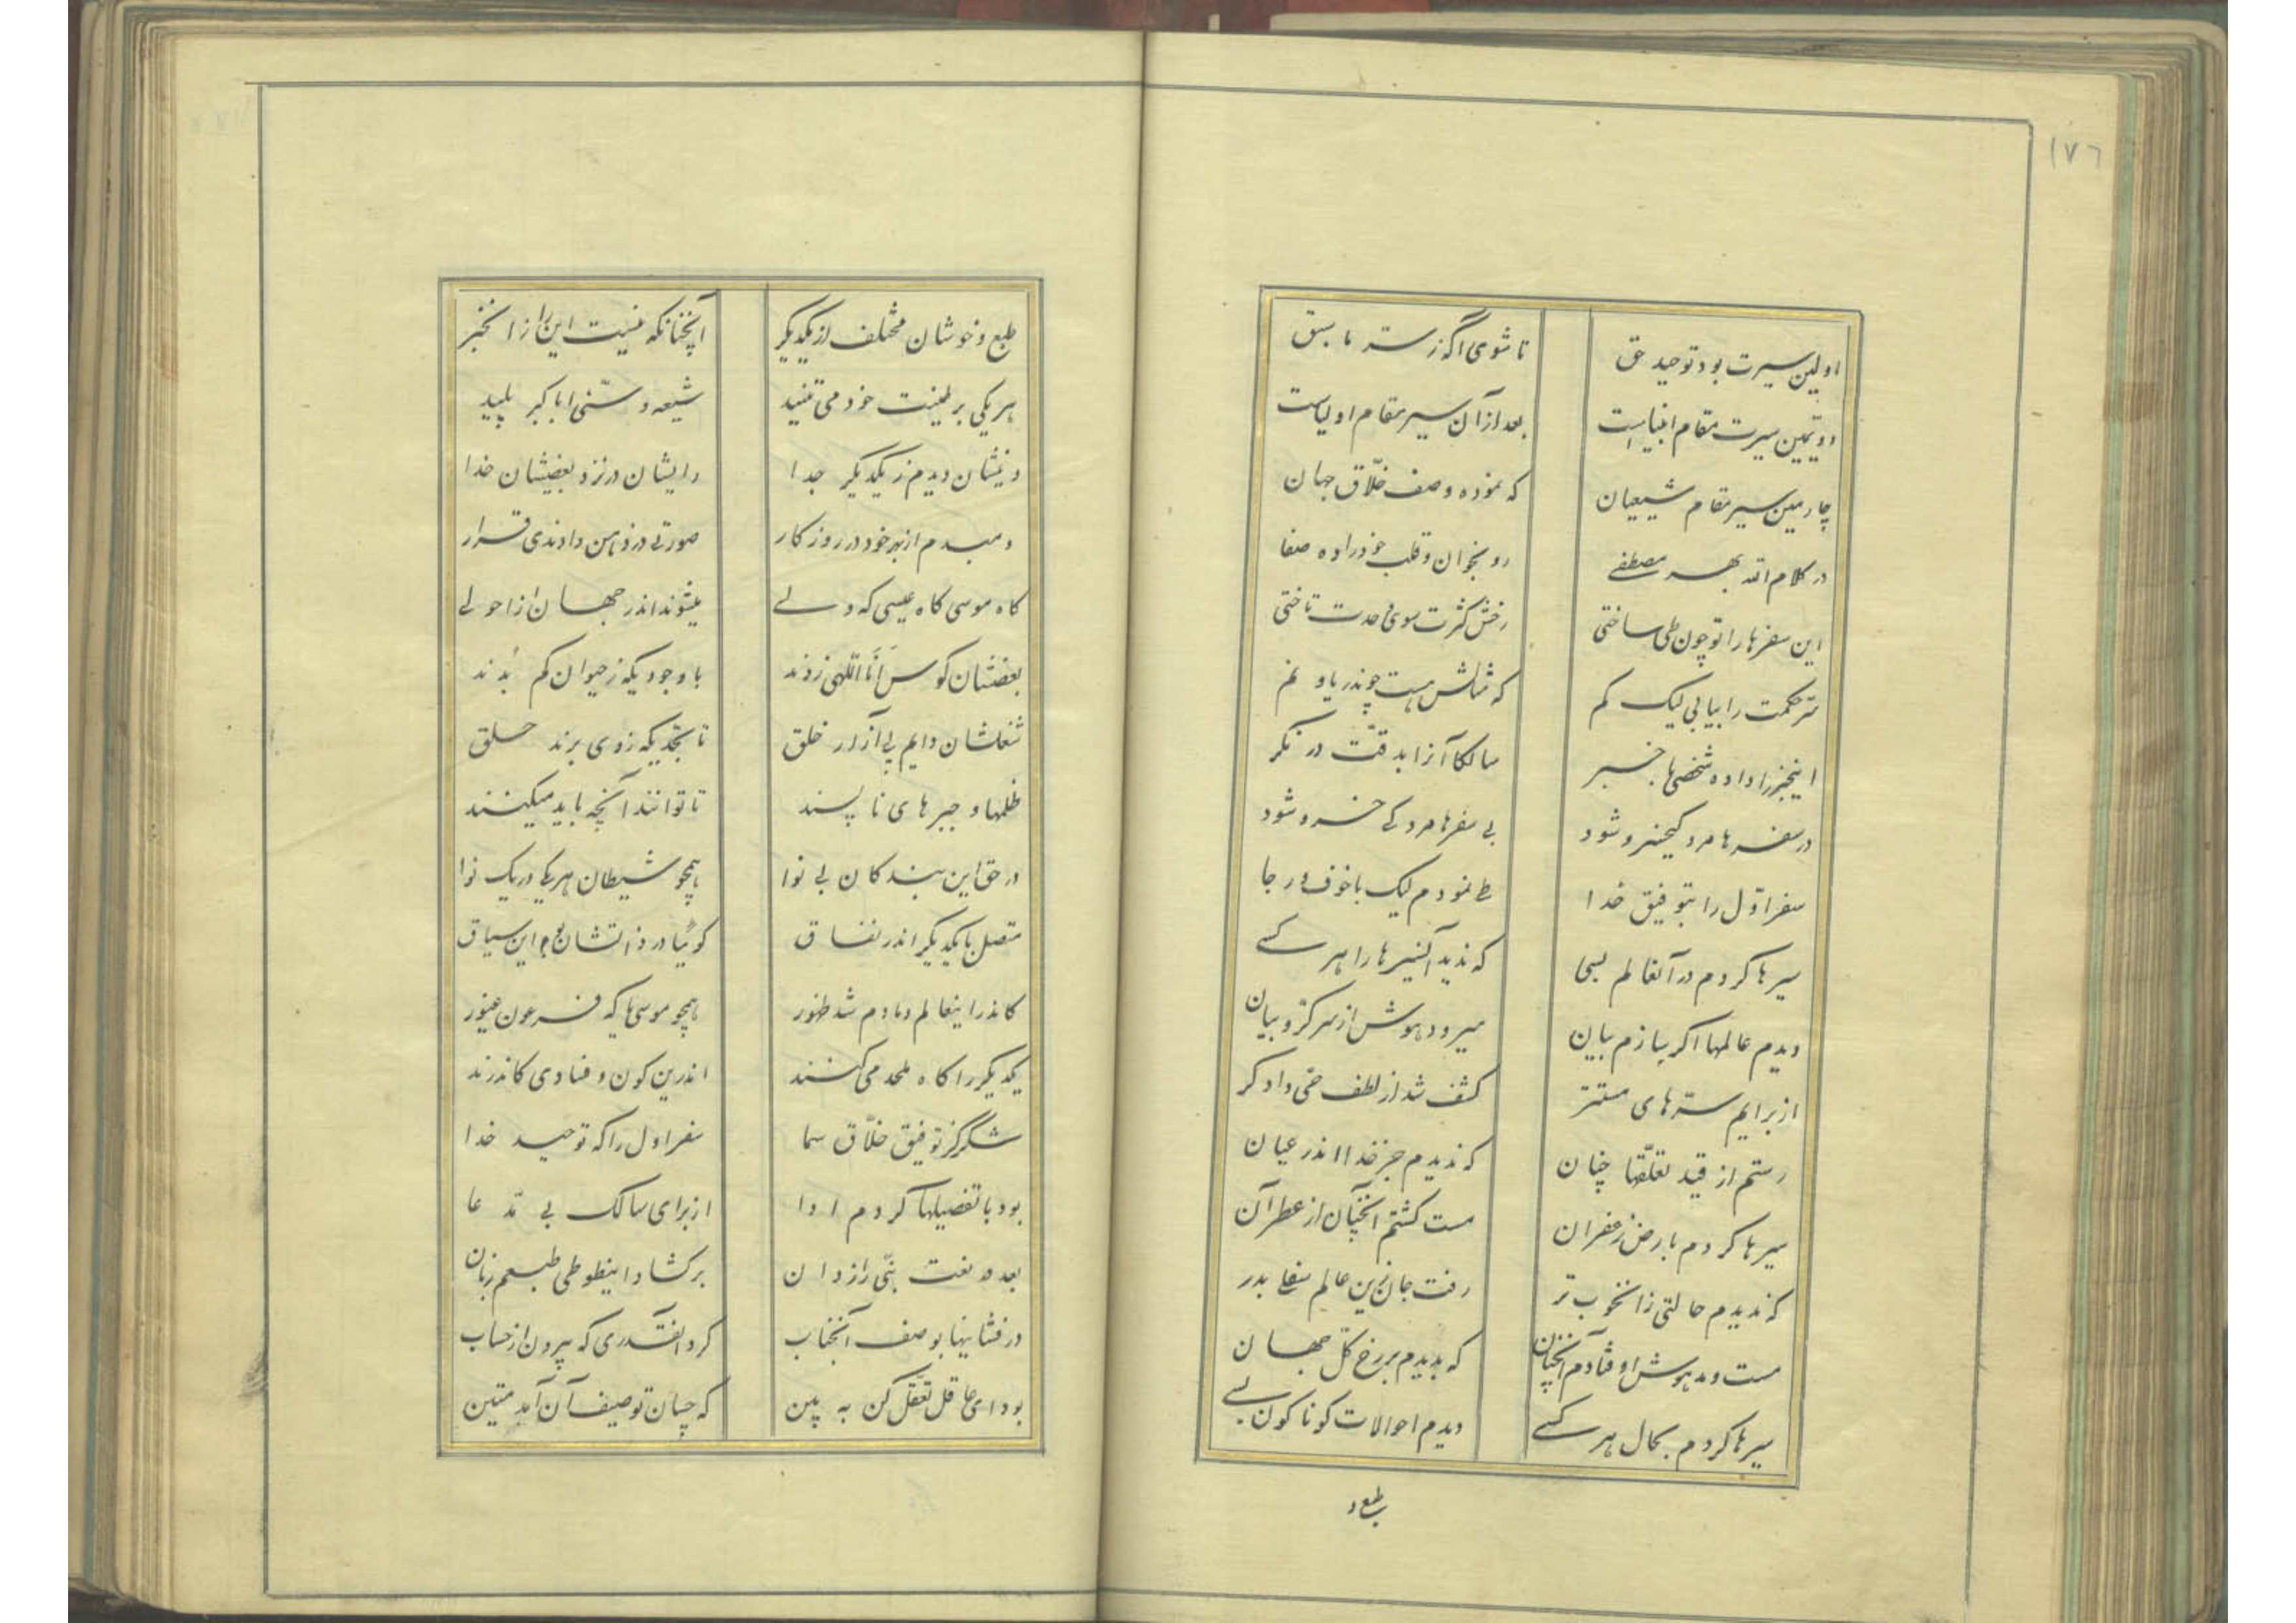 ۱۷۶
اولین سیرت بود توحید حق تا شوی آگه ز سر ما سبق
دویمین سیرت مقام انبیاست بعد از آن سیر مقام اولیاست
چارمین سیر مقام شیعیان که نموده وصف خلّاق جهان
در کلام الله بهر مصطفی رو بخوان و قلب خود را ده صفا
این سفرها را تو چون طی ساختی رخش کثرت سوی وحدت تاختی
سر حکمت را بیابی لیک کم که مثالش هست چون دریا و نم
اینخبر را داده شخصی باخبر سالکا آنرا بدقّت در نکر
در سفرها مرد کیخسرو شود بی سفرها مرد کی خسرو شود
سفر اوّل را بتوفیق خدا طی نمودم لیک با خوف و رجا
سیرها کردم در آنعالم بسی که ندید آنسیرها را هر کسی
دیدم عالمها اکر سازم بیان میرود هوش از سر کرّوبیان
از برایم سترهای مستتر کشف شد از لطف حیّ دادکر
رستم از قید تعلّقها چنان که ندیدم جز خدا اندر عیان
سیرها کردم بارض زعفران مست کشتم آنچنان از عطر آن
که ندیدم حالتی زان خوب تر رفت جان زین عالم سفلی بدر
مست و مدهوش اوفتادم آنچنان که بدیدم برزخ کلّ جهان
سیرها کردم بحال هر کسی دیدم احوالات کوناکون بسی
طبع و
طبع و خوشان مختلف از یکدیکر آنچنانکه نیست این را زان خبر
هر یکی بر طینت خود می تنید شیعه و سنّی ابا کبر پلید
دینشان دیدم ز یکدیکر جدا رایشان در نزد بعضیشان خدا
دمبدم از بهر خود در روزکار صورتی در ذهن دادندی قرار
کاه موسی کاه عیسی که ولی میشوند اندر جهان از احولی
بعضشان کوس أنَا اللّهی زدند با وجودیکه ز حیوان کم بُدند
شغلشان دایم پی آزار خلق تا بحدّیکه زوی برند حلق
ظلمها و جبرهای ناپسند تا توانند آنچه باید میکنند
در حق این بندکان بی نوا همچو شیطان هر یکی در یک نوا
متصل با یکدیکر اندر نفاق کوئیا در ذاتشان بود این سیاق
کاندر اینعالم دمادم شد ظهور همچو موسی با که فرعون غیور
یکدیکر را کاه ملحد می کنند اندرین کون و فسادی کاندرند
شکر کز توفیق خلّاق سما سفر اول را که توحید خدا
بود با تفضیلها کردم ادا از برای سالک بی مدّعا
بعده نعت نبّی رازدان برکشاد اینطوطی طبعم زبان
درفشانیها بوصف آنجناب کرد آنقدری که بیرون از حساب
بود ای عاقل تعقّل کن به بین که چسان توصیف آن آمد متین